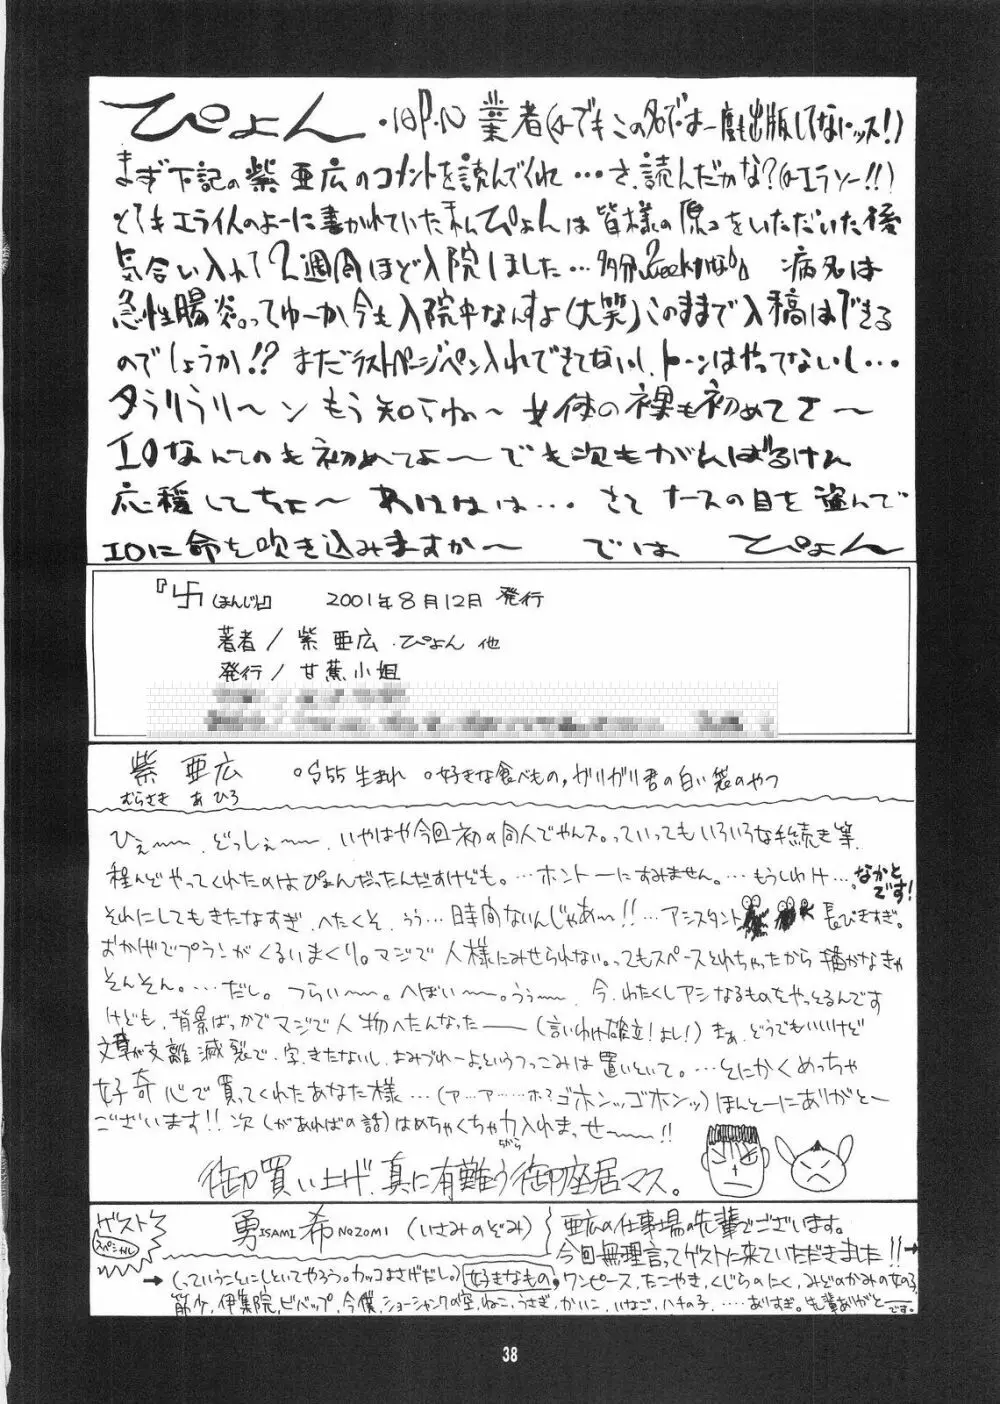 ぴょん 業者(でもこの名では一度も出版してないッス!)
まず下記の紫亜広のコメントを読んでくれ…さ、読んだかな?(エラソー!!)
とてもエライ人のよーに書かれていた私ぴょんは皆様の原コをいただいた後
気合い入れて2週間ほど入院しました…多分2weekかな。病名は
急性腸炎。ってゆーか今も入院中なんすよ(大笑)このままで入稿はできる
のでしょうか!?まだラストページペン入れできてないし、トーンはやってないし…
タラリラリ〜ンもう知らね〜女体の裸も初めてさ〜
エロなんてのも初めてよ〜でも次もがんばるけん
応援してちょ〜あははは…さてナースの目を盗んで
エロに命を吹き込みますか〜 では ぴょん
『卐(まんじ)』 2001年8月12日 発行
著者/紫 亜広・ぴょん 他
発行/甘蕉小姐
紫 亜広 ○S55生まれ ○好きな食べもの,ガリガリ君の白い袋のやつ
むらさき あひろ
ひぇ〜〜、どっしぇ〜〜、いやはや今回初の同人でやんス。っていってもいろいろな手続き等、
殆んどやってくれたのはぴょんだったんだすけども。…ホントーにすみません。…もうしわけ…なかとです!
それにしてもきたなすぎ、へたくそ、うぅ…時間ないんじゃあ〜!!…アシスタント 長びきすぎ。
おかげでプランがくるいまくり。マジで人様にみせられない。ってもスペースとれちゃったから描かなきゃ
そんそん。…だし。つらい〜〜。へぼい〜〜。うぅ〜〜、今、わたくしアシなるものをやっとるんです
けども、背景ばっかでマジで人物へたんなった――(言いわけ確立!よし!)まぁ、どうでもいいけど
文章が支離滅裂で、字、きたないし、よみづれーよというつっこみは置いといて。…とにかくめっちゃ
好奇心で買ってくれたあなた様…(ア…ア……ホ?ゴホンッゴホンッ)ほんとーにありがとー
ございます!!次(があればの話)はめちゃくちゃ力入れまっせ〜〜!!
御買い上げ、真に有難う御座居マス。
ゲスト スペシャル
勇ISAMI 希NOZOMI (いさみのぞみ)
亜広の仕事場の先輩でございます。
今回無理言ってゲストに来ていただきました!!→
→(っていうことにしといてやろう。カッコよさげだし。)好きなもの,ワンピース、たこやき、くじらのにく、みどりのかみの女の子
筋少、伊集院、ビバップ、今僕、ショーシャンクの空、ねこ、うさぎ、かいこ、いなご、ハチの子、……ありすぎ。先輩ありがとーです。
38